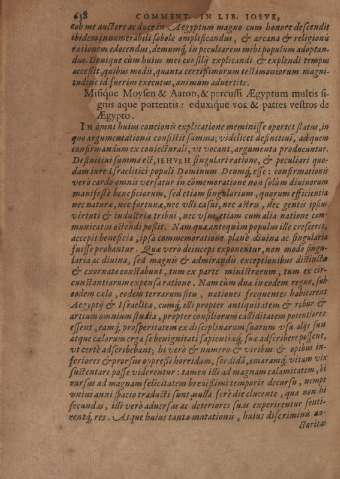 658 COMMENT. IN LIB. IOSVE,
me auctore ac duce in Aegyptum magno cum honore descendit
ibidem innumerabili sobole amplificandus, & arcana & religionis
ratione educendus, demumq́; in peculiarem mihi populum adoptan-
dus. Denique cùm huius mei consilij explicandi & explendi tempus
accessit, quibus modis, quanta certissimorum testimoniorum magni-
tudine id fuerim executus, animum aduertite.
Misique Moysen & Aaron, & percussi Ægyptum multis si-
gnis atque portentis: eduxique vos & patres vestros de
Ægypto.
IN omni huius concionis explicatione meminisse oportet status, in
quo argumentationis consistit summa, videlicet definitiui, adquem
confirmandum ex coniecturali, vt vocant, argumenta producuntur.
Definitiui summa est, IEHVEH singulari ratione, & peculiari quo-
dam iure Israelitici populi Dominum Deumq́; esse: confirmationis
verò cardo omnis versatur in commemoratione non solùm diuinorum
manifestè beneficiorum, sed etiam singularium, quorum efficientia
nec natura, nec fortuna, nec vlli casui, nec astris, nec gentis ipsius
virtuti & industria tribui, nec vsum etiam cum alia natione com-
municatum ostendi posset. Nam qua antequàm populus ille cresceret,
accepit beneficia, ipsa commemoratione planè diuina ac singularia
fuisse probantur. Quæ verò deinceps exponentur, non modò singu-
laria ac diuina, sed magnis & admirandis exceptionibus distincta
& exornata constabunt, tum ex parte ministrorum, tum ex cir-
cunstantiarum expensa ratione. Nam cùm duæ in eodem regno, sub
eodem cælo, eodem terrarum situ, nationes frequentes habitarent
Aegyptij & Israelitæ, cumq́; illi propter antiquitatem & robur &
artium omnium studia, propter consiliorum calliditatem potentiores
essent, eamq́; prosperitatem ex disciplinarum suarum vsu
atque calorum erga se benignitati sapientiaq́; sua adscribere possent,
vt certè adscribebant; hi verò & numero & viribus & opibus in-
feriores ac prorsus oppressi horridam, sordidamq́; vitam vix
sustentare posse viderentur: tamen illi ad magnam calamitatem, hi
rursus ad magnam felicitatem breuissimi temporis decursu, nempe
vnius anni spatio traducti sunt nulla ferè die elucente, qua non hi
secundas, illi verò aduersas ac deteriores suas experirentur senti-
rentq́; res. Atque huius tanta mutationis, huius discriminis au-
ctoritas